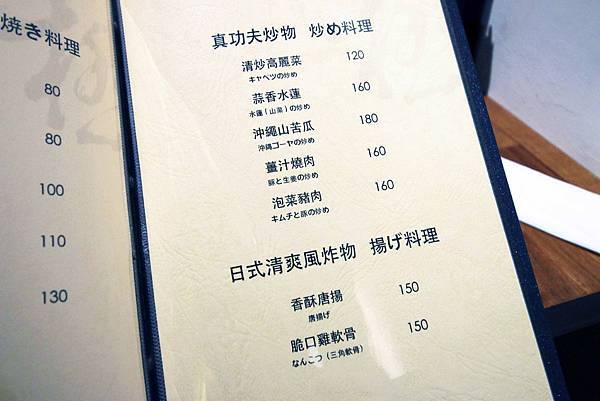 焼き料理
80
80
100
110
130
真功夫炒物 炒め料理
清炒高麗菜 120
キャベツの炒め
蒜香水蓮 160
水蓮(山菜)の炒め
沖繩山苦瓜 180
沖縄ゴーヤの炒め
薑汁燒肉 160
豚と生姜の炒め
泡菜豬肉 160
キムチと豚の炒め
日式清爽風炸物 揚げ料理
香酥唐揚 150
唐揚げ
脆口雞軟骨 150
なんこつ(三角軟骨)